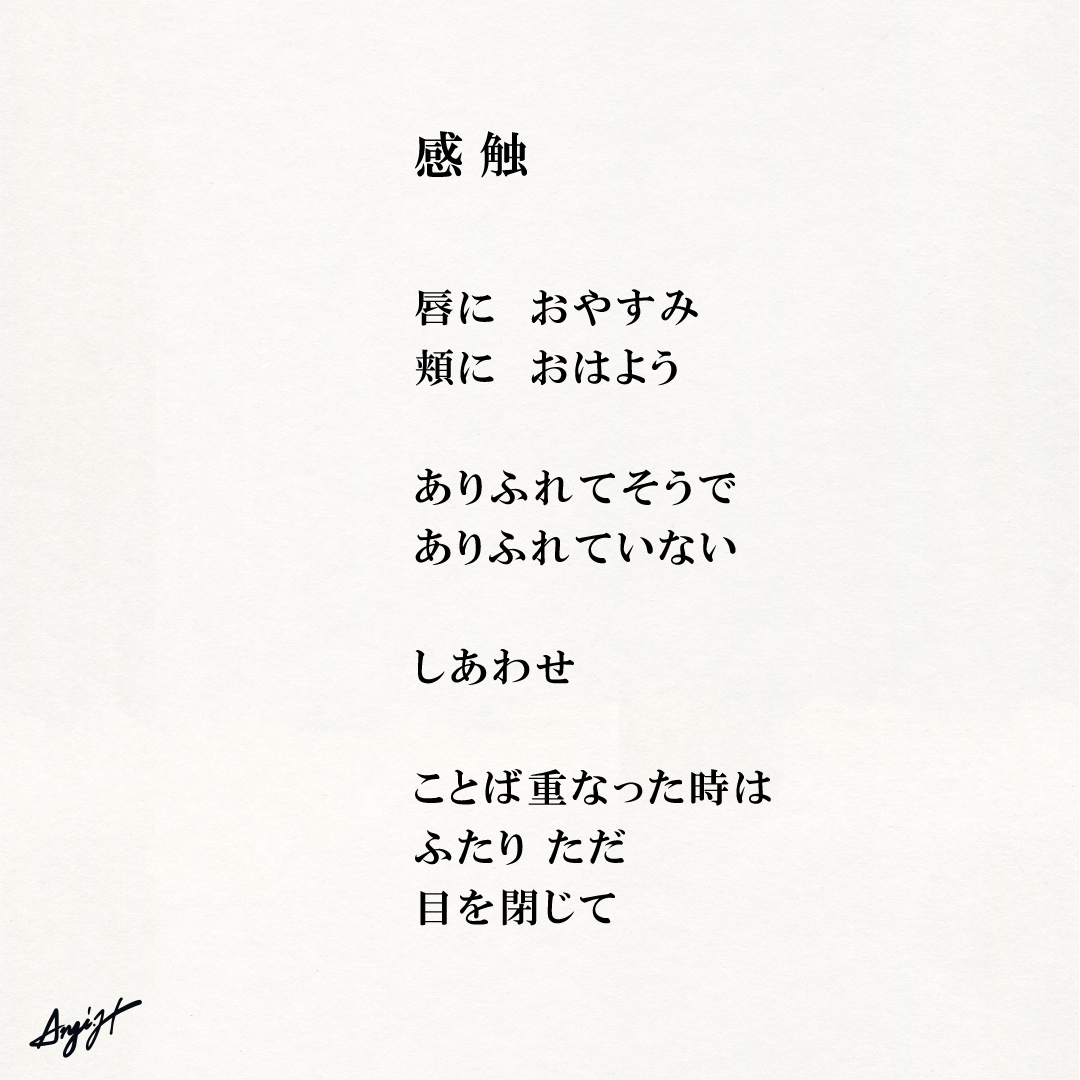 感触
唇に　おやすみ
頬に　おはよう
ありふれてそうで
ありふれていない
しあわせ
ことば重なった時は
ふたり ただ
目を閉じて